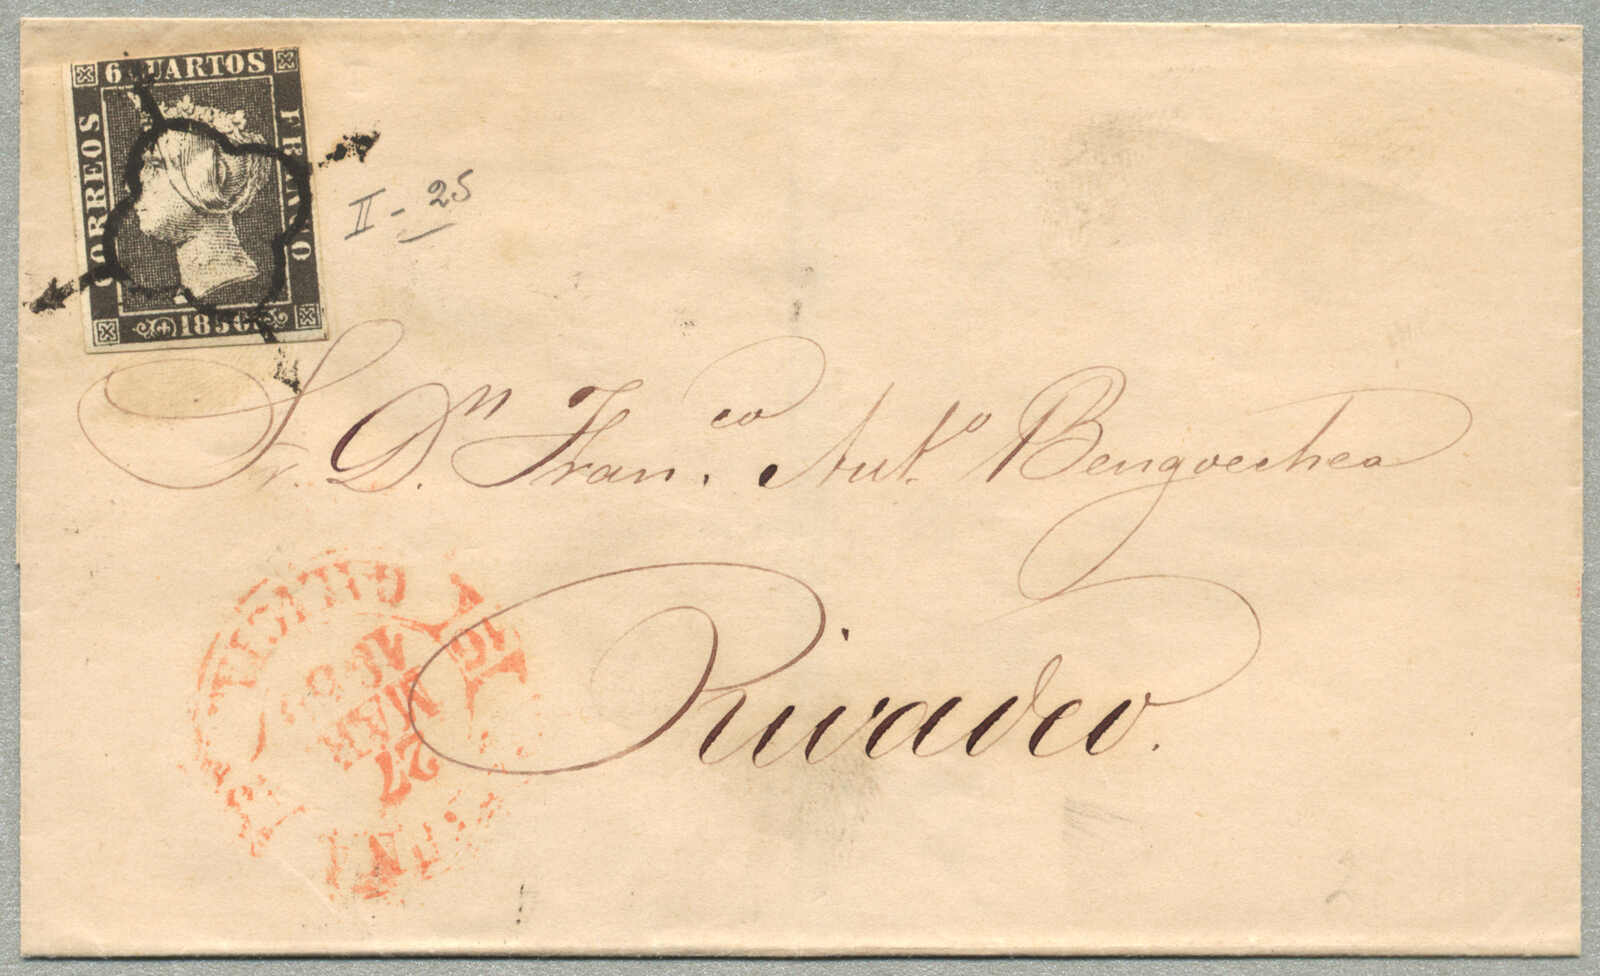 6 CUARTOS
CORREOS
FRANCO
1850
II - 25
Sr. Dn. Franco. Anto. Bengoechea
Rivadeo.
GALICIA
27
MAR